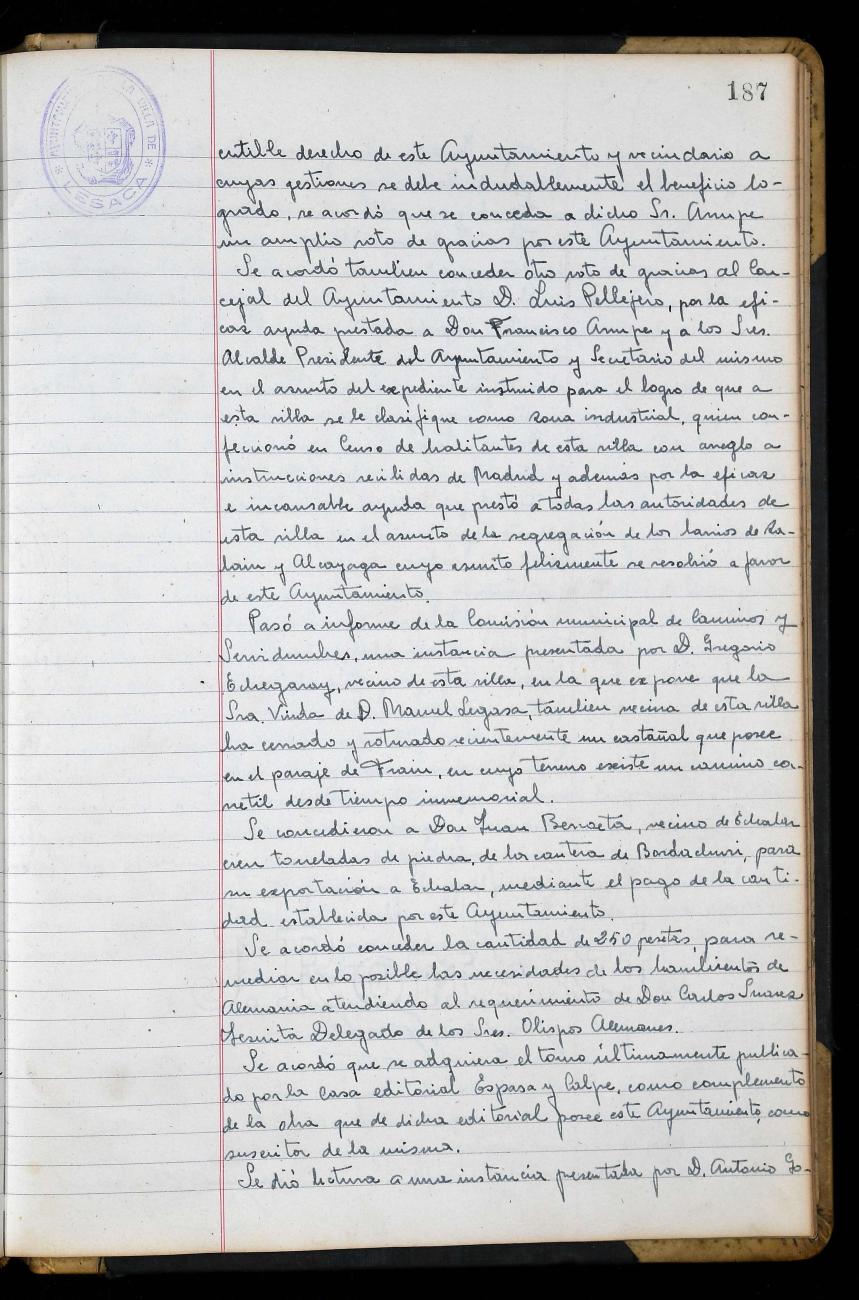 187
AYUNTAMIENTO DE LA VILLA DE
* LESACA *
cutible derecho de este Ayuntamiento y vecindario a
cuyas gestiones se debe indudablemente el beneficio lo-
grado, se acordó que se conceda a dicho Sr. Arrupe
un amplio voto de gracias por este Ayuntamiento.
Se acordó tambien conceder otro voto de gracias al Con-
cejal del Ayuntamiento D. Luis Pellejero, por la efi-
caz ayuda prestada a Don Francisco Arrupe y a los Sres.
Alcalde Presidente del Ayuntamiento y Secretario del mismo
en el asunto del expediente instruido para el logro de que a
esta villa se le clasifique como zona industrial, quien con-
feccionó en Censo de habitantes de esta villa con arreglo a
instrucciones recibidas de Madrid y además por la eficaz
e incansable ayuda que prestó a todas las autoridades de
esta villa en el asunto de la segregación de los barrios de Za-
lain y Alcayaga cuyo asunto felizmente se resolvió a favor
de este Ayuntamiento.
Pasó a informe de la Comisión municipal de Caminos y
Servidumbres, una instancia presentada por D. Gregorio
Echegaray, vecino de esta villa, en la que expone que la
Sra. Viuda de D. Manuel Legasa, tambien vecina de esta villa
ha cerrado y roturado recientemente un castañal que posee
en el paraje de Frain, en cuyo terreno existe un camino ca-
rretil desde tiempo inmemorial.
Se concedieron a Don Juan Berroeta, vecino de Echalar
cien toneladas de piedra, de la cantera de Bordachuri, para
su exportación a Echalar, mediante el pago de la canti-
dad establecida por este Ayuntamiento.
Se acordó conceder la cantidad de 250 pesetas, para re-
mediar en lo posible las necesidades de los hambrientos de
Alemania atendiendo al requerimiento de Don Carlos Suarez
Jesuita Delegado de los Sres. Obispos Alemanes.
Se acordó que se adquiera el tomo últimamente publica-
do por la casa editorial Espasa y Calpe, como complemento
de la obra que de dicha editorial posee este Ayuntamiento, como
suscritor de la misma.
Se dió lectura a una instancia presentada por D. Antonio Go-